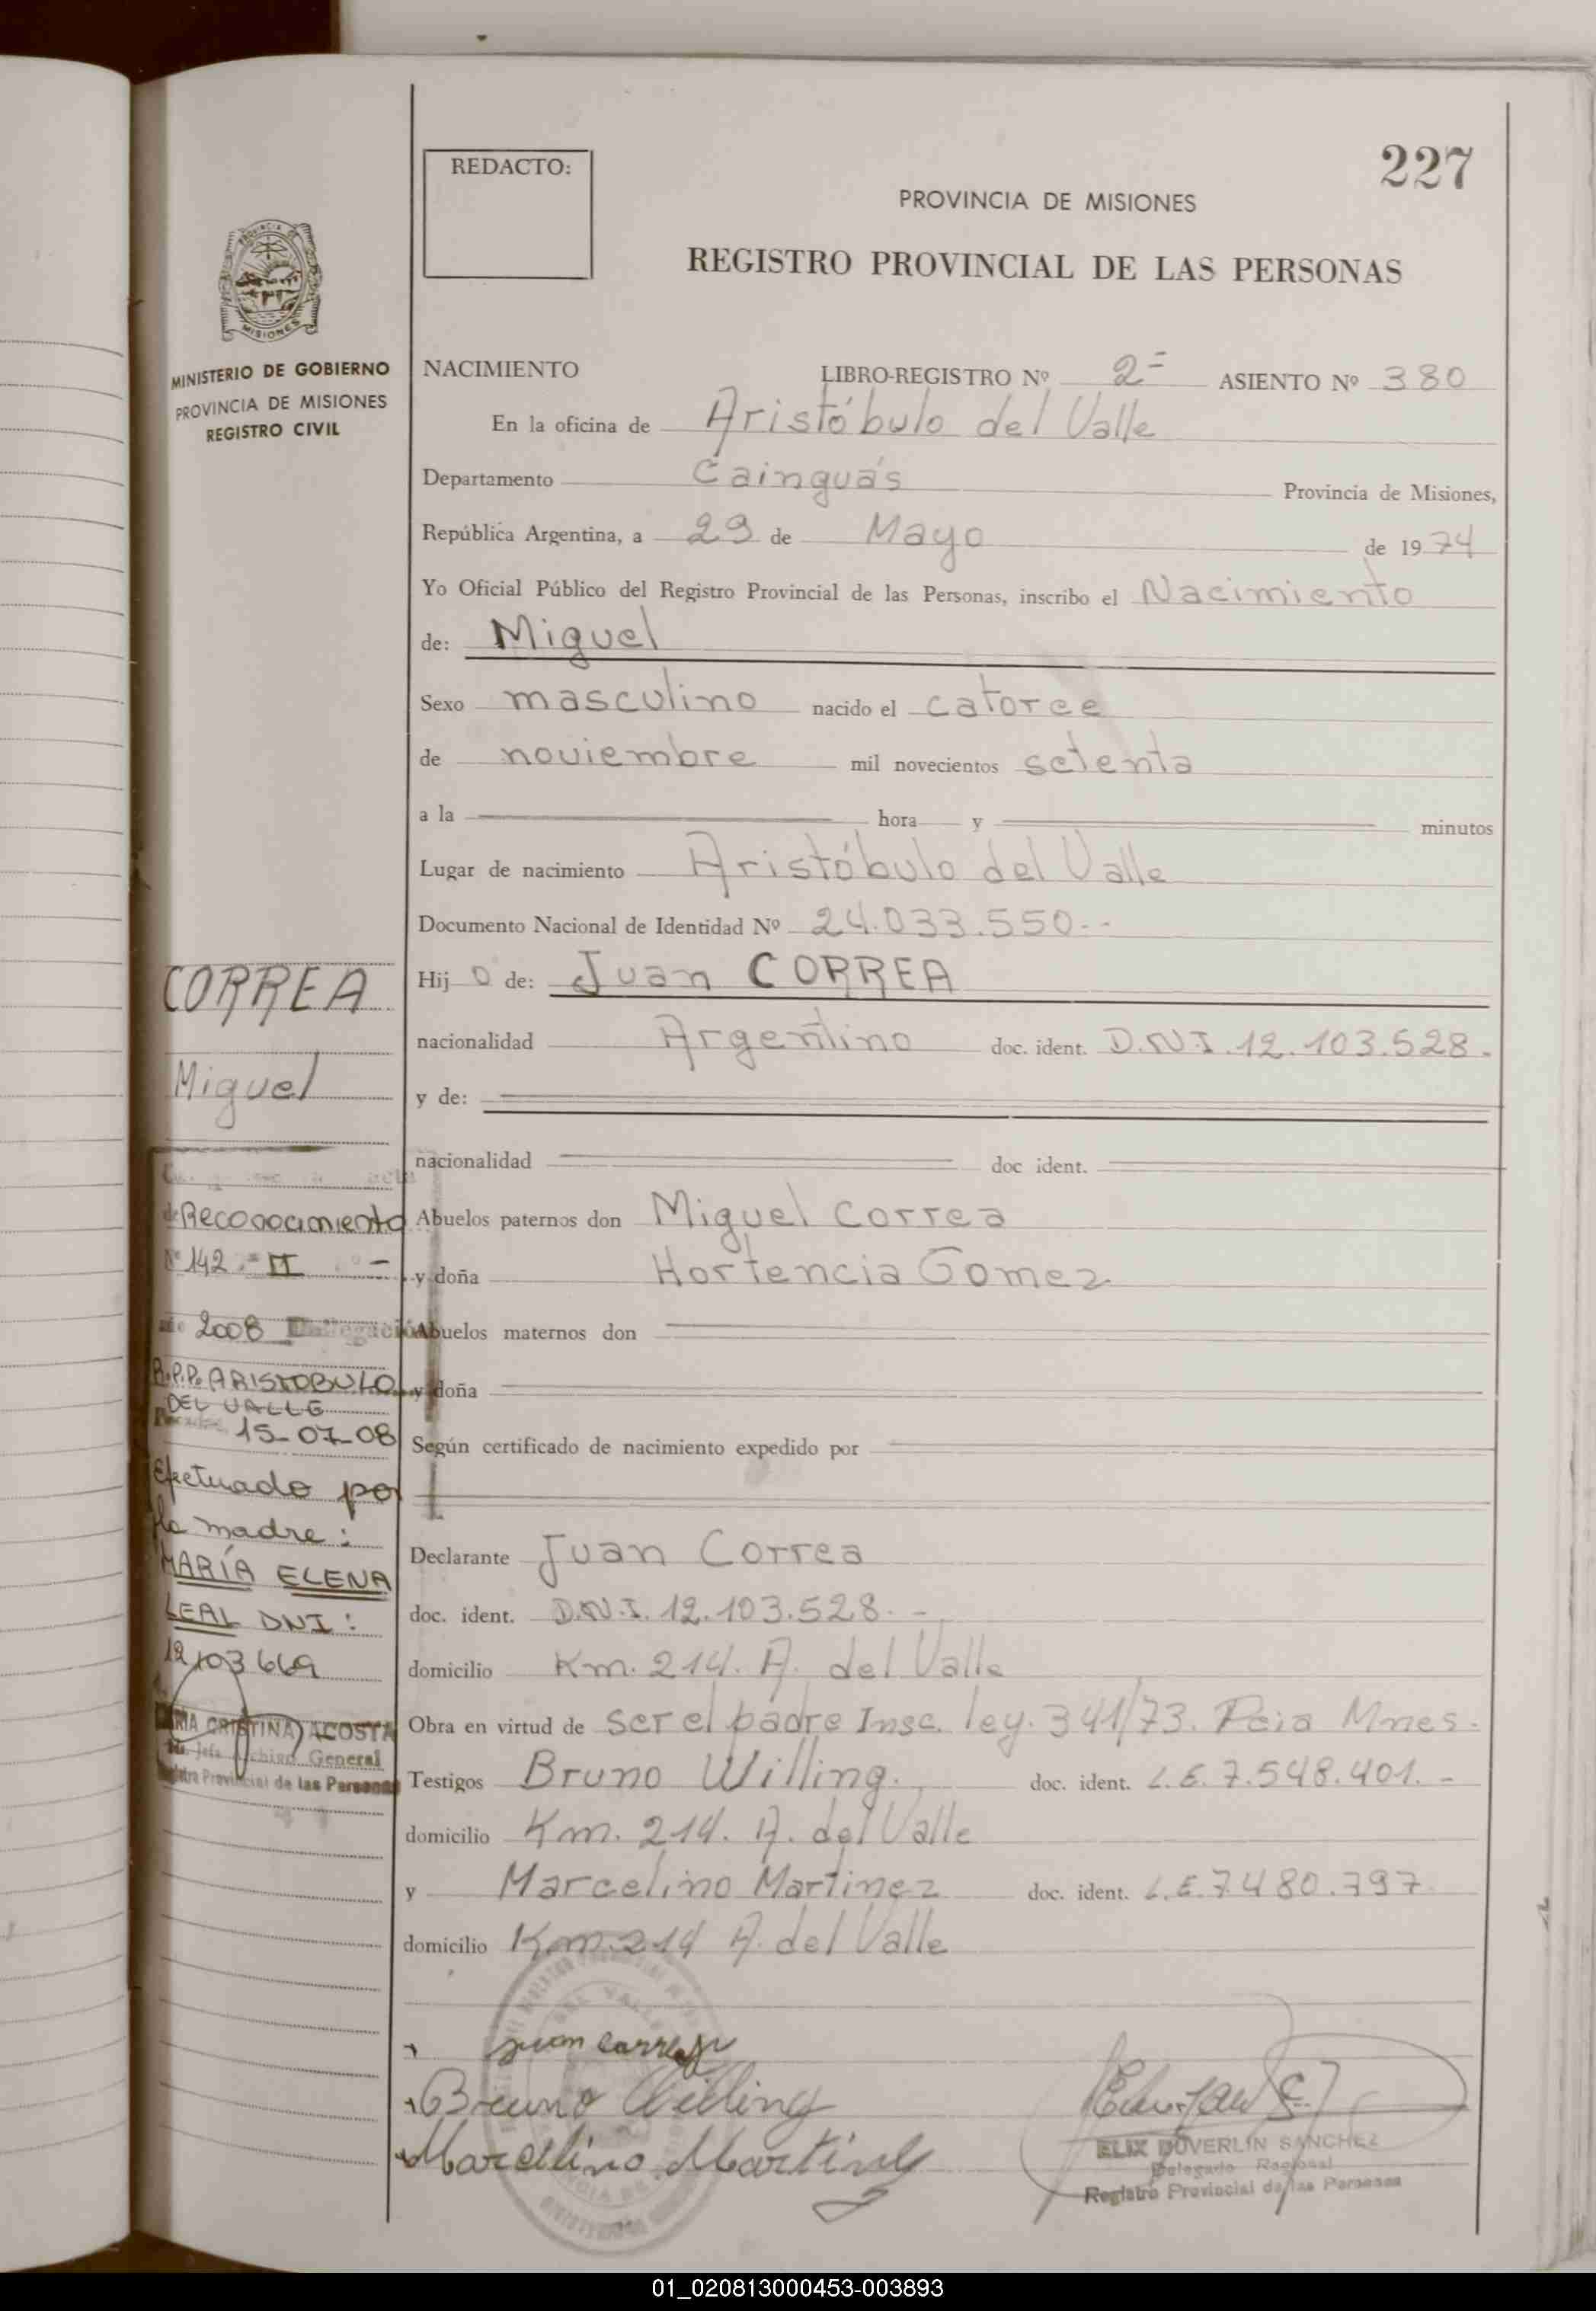 REDACTO:
227
PROVINCIA DE MISIONES
REGISTRO PROVINCIAL DE LAS PERSONAS
PROVINCIA DE
MISIONES
MINISTERIO DE GOBIERNO
PROVINCIA DE MISIONES
REGISTRO CIVIL
NACIMIENTO LIBRO-REGISTRO Nº 2= ASIENTO Nº 380
En la oficina de Aristóbulo del Valle
Departamento Cainguás Provincia de Misiones,
República Argentina, a 29 de Mayo de 1974
Yo Oficial Público del Registro Provincial de las Personas, inscribo el Nacimiento
de: Miguel
Sexo masculino nacido el catorce
de noviembre mil novecientos setenta
a la hora y minutos
Lugar de nacimiento Aristóbulo del Valle
Documento Nacional de Identidad Nº 24.033.550--
Hijo de: Juan CORREA
nacionalidad Argentino doc. ident. D.N.I. 12.103.528.
y de:
nacionalidad doc ident.
Abuelos paternos don Miguel Correa
y doña Hortencia Gomez
Abuelos maternos don
y doña
Según certificado de nacimiento expedido por
Declarante Juan Correa
doc. ident. D.N.I. 12.103.528.-
domicilio Km. 214. A. del Valle
Obra en virtud de ser el padre Insc. ley. 341/73. Pcia Mnes.
Testigos Bruno Willing. doc. ident. L.E. 7.548.401.-
domicilio Km. 214. A. del Valle
y Marcelino Martinez doc. ident. L.E. 7.480.797.
domicilio Km. 214 A. del Valle
CORREA
Miguel
de Reconocimiento
Nº 142 - II -
2008 Delegación
R.P.P. ARISTOBULO
DEL VALLE
15-07-08
Efectuado por
la madre:
MARÍA ELENA
LEAL DNI:
12103669
MARIA CRISTINA ACOSTA
Jefa Archivo General
Registro Provincial de las Personas
Juan Correa
Bruno Willing
Marcelino Martinez
ELIX DUVERLIN SANCHEZ
Delegado Regional
Registro Provincial de las Personas
01_020813000453-003893